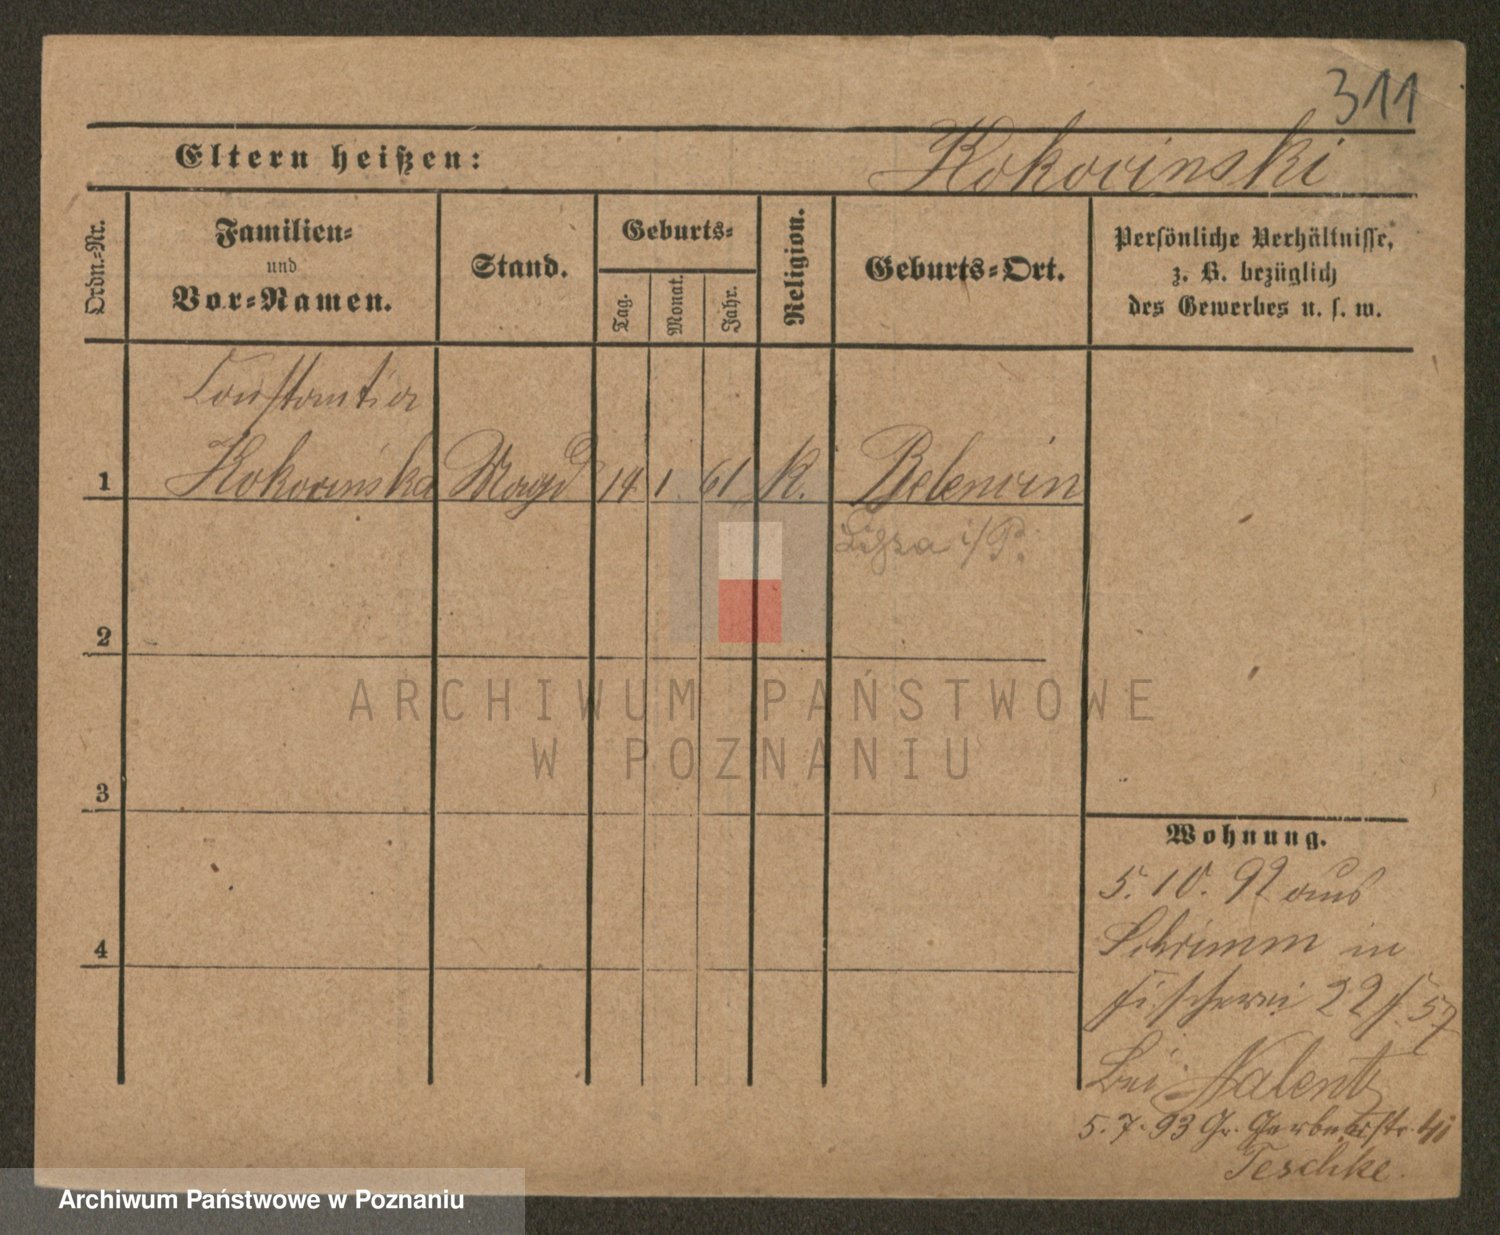 311
Eltern heißen:
Kokocinski
Ordn.-Nr.
Familien-
und
Vor-Namen.
Stand.
Geburts-
Tag.
Monat.
Jahr.
Religion.
Geburts-Ort.
Persönliche Verhältnisse,
z. B. bezüglich
des Gewerbes u. s. w.
Constantia
1 Kokocinska Magd 14 1. 61 K. Belencin
Lissa i/P.
2
3
4
Wohnung.
5. 10. 92 aus
Schrimm in
Fischerei 22
Bei Valent
5. 7. 93 Gr. Gerberstr.
Teschke.
ARCHIWUM PAŃSTWOWE
W POZNANIU
Archiwum Państwowe w Poznaniu